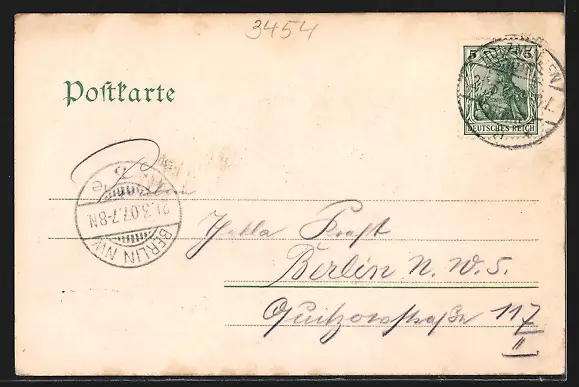 3454
Postkarte
5 5
DEUTSCHES REICH
21.3.07.7-8N.
BERLIN NW
Kraft
Berlin N.W.5.
Quitzowstraße 117
II